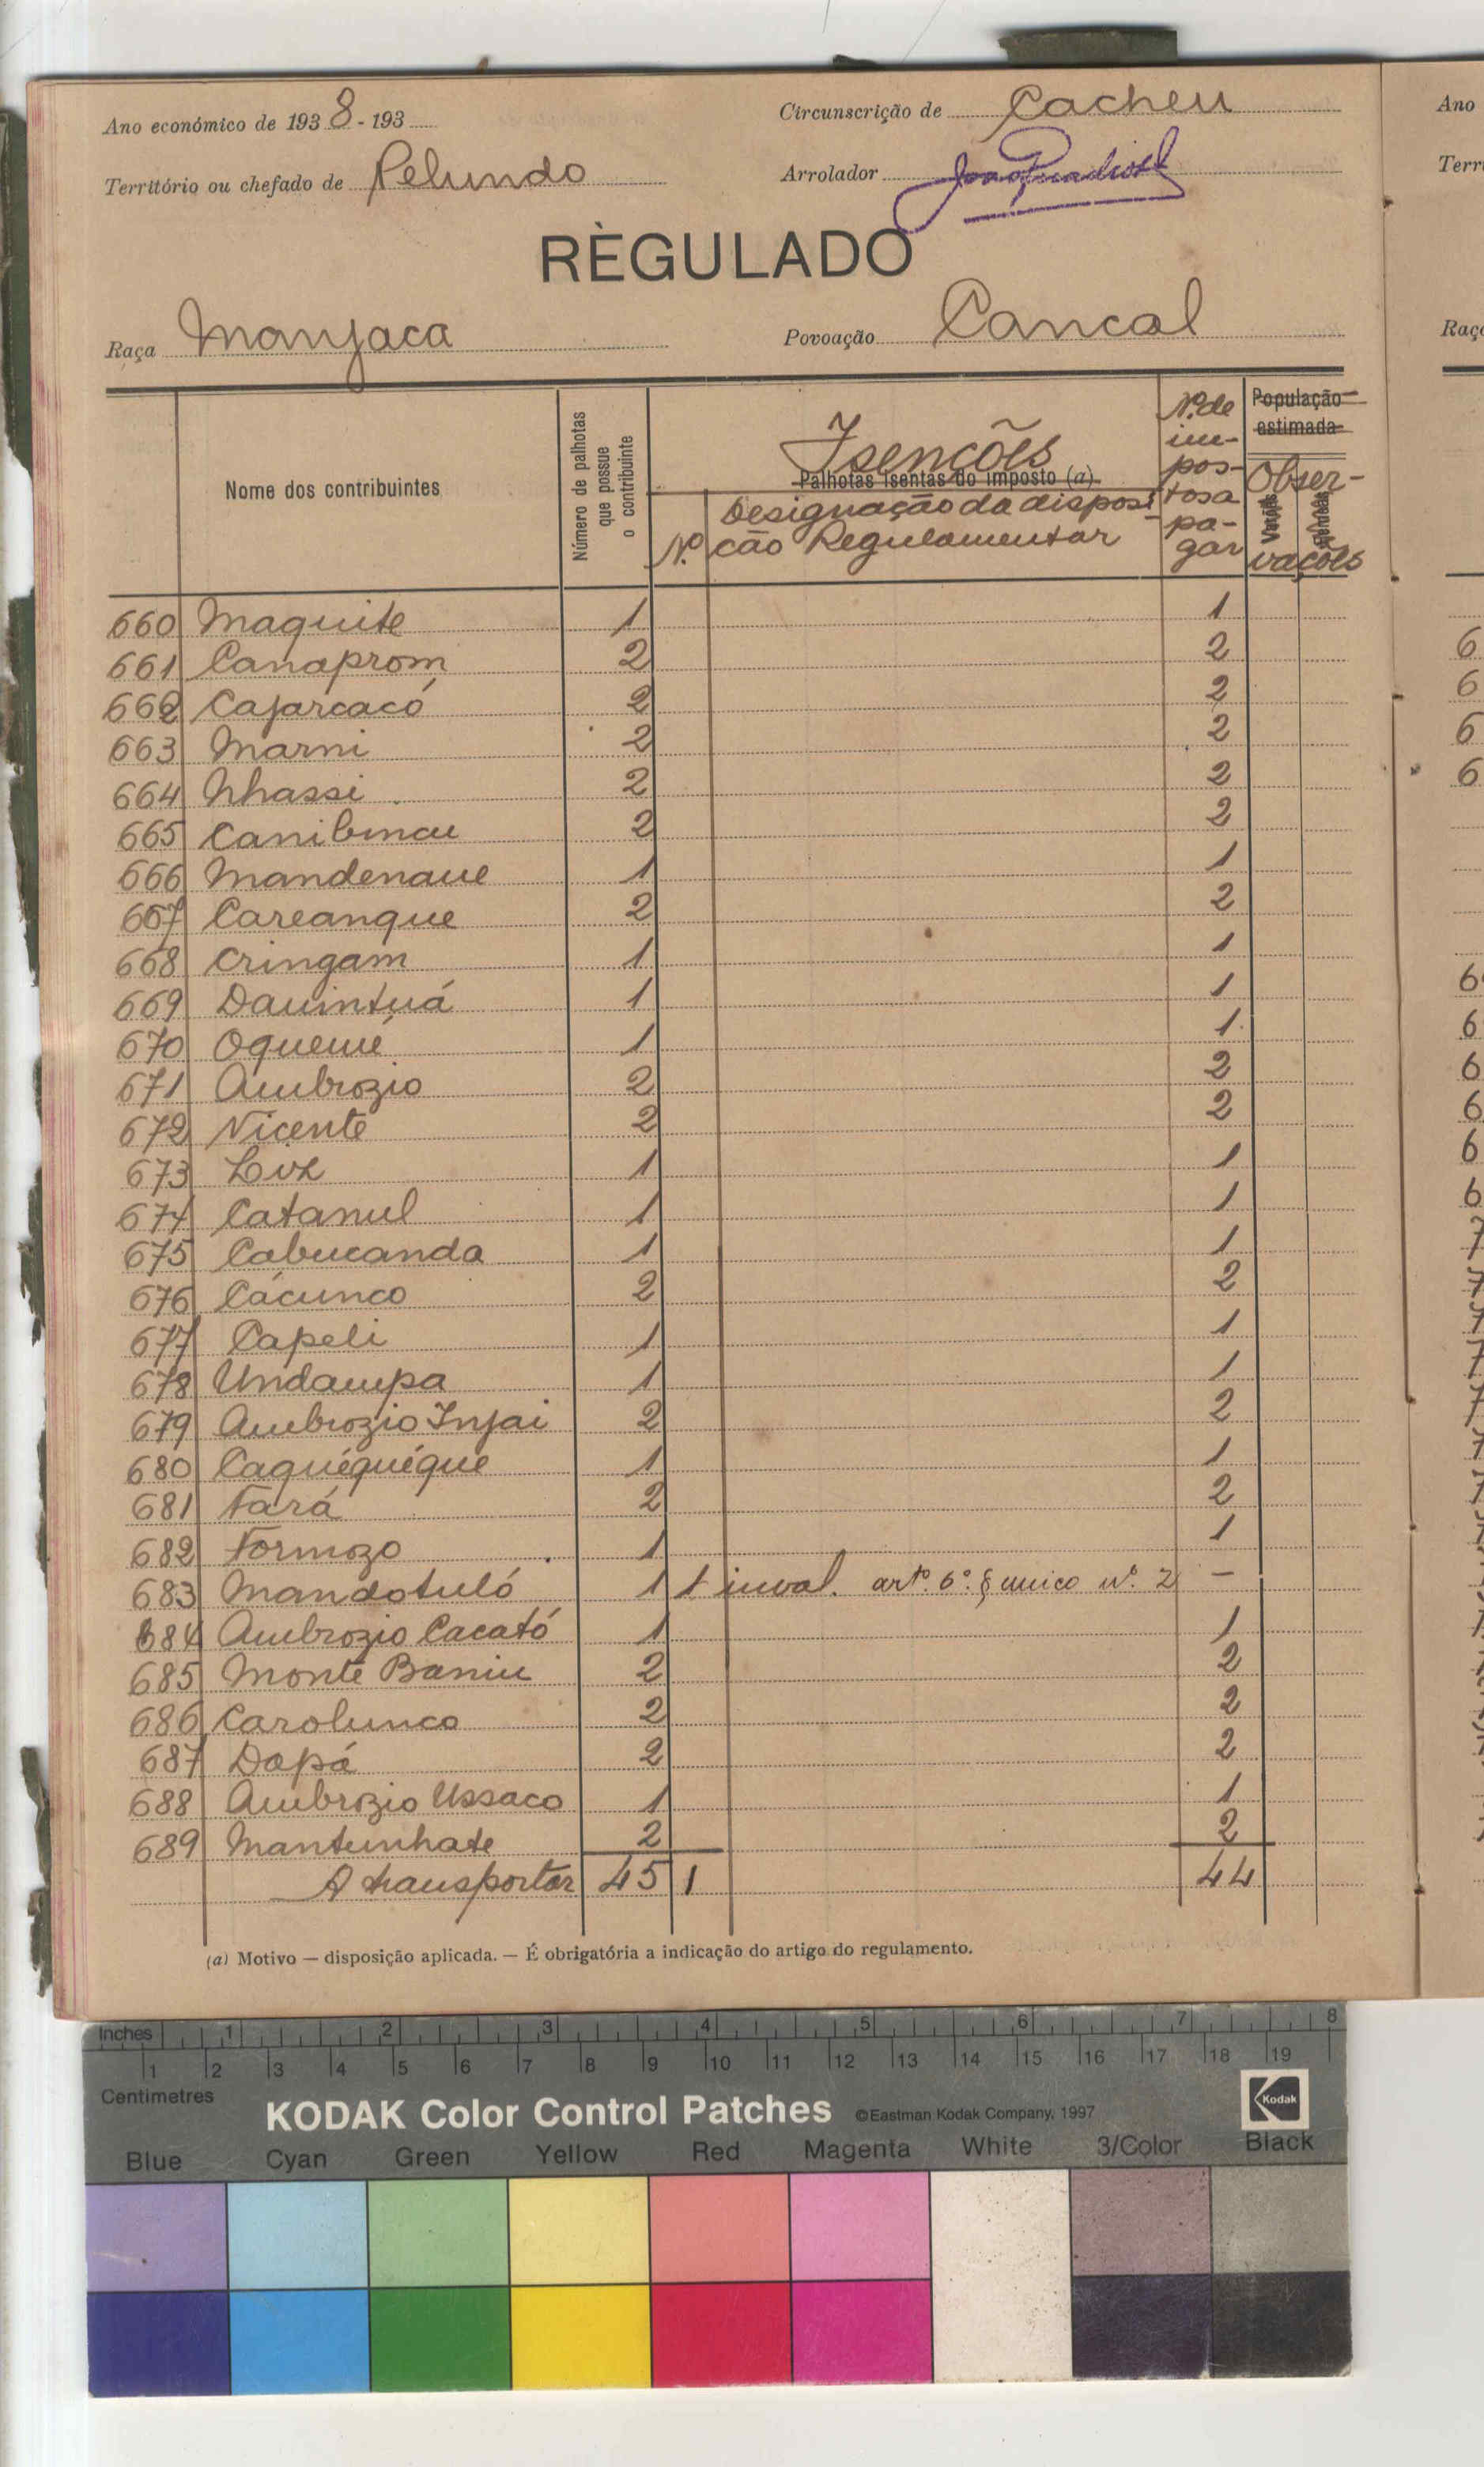 Ano económico de 1938-193
Circunscrição de Cacheu
Território ou chefado de Pelundo
Arrolador
RÈGULADO
Raça Manjaca
Povoação Cancal
Nome dos contribuintes
Número de palhotas que possue o contribuinte
Isenções
Palhotas isentas do imposto (a)
Nº
Designação da disposição Regulamentar
Nº de impostos a pagar
População estimada
Observações
Varões
660 Maquite 1 1
661 Canaprom 2 2
662 Cajarcacó 2 2
663 Marni 2 2
664 Nhassi 2 2
665 Canibinau 2 2
666 Mandenaue 1 1
667 Careanque 2 2
668 Cringam 1 1
669 Dauintuá 1 1
670 Oqueme 1 1
671 Ambrozio 2 2
672 Vicente 2 2
673 Luz 1 1
674 Catanul 1 1
675 Cabucanda 1 1
676 Cácunco 2 2
677 Capeli 1 1
678 Undampa 1 1
679 Ambrozio Injai 2 2
680 Caquéquéque 1 1
681 Fará 2 2
682 Formozo 1 1
683 Mandotuló 1 1 inval. artº. 6º. § unico nº. 2 –
684 Ambrozio Cacató 1 1
685 Monte Baniu 2 2
686 Carolunco 2 2
687 Dapá 2 2
688 Ambrozio Ussaco 1 1
689 Mantunhate 2 2
A transportar 45 1 44
(a) Motivo — disposição aplicada. — É obrigatória a indicação do artigo do regulamento.
Ano
Terri
Raça
Inches 1 2 3 4 5 6 7 8
1 2 3 4 5 6 7 8 9 10 11 12 13 14 15 16 17 18 19
Centimetres
KODAK Color Control Patches ©Eastman Kodak Company, 1997 Kodak
Blue Cyan Green Yellow Red Magenta White 3/Color Black